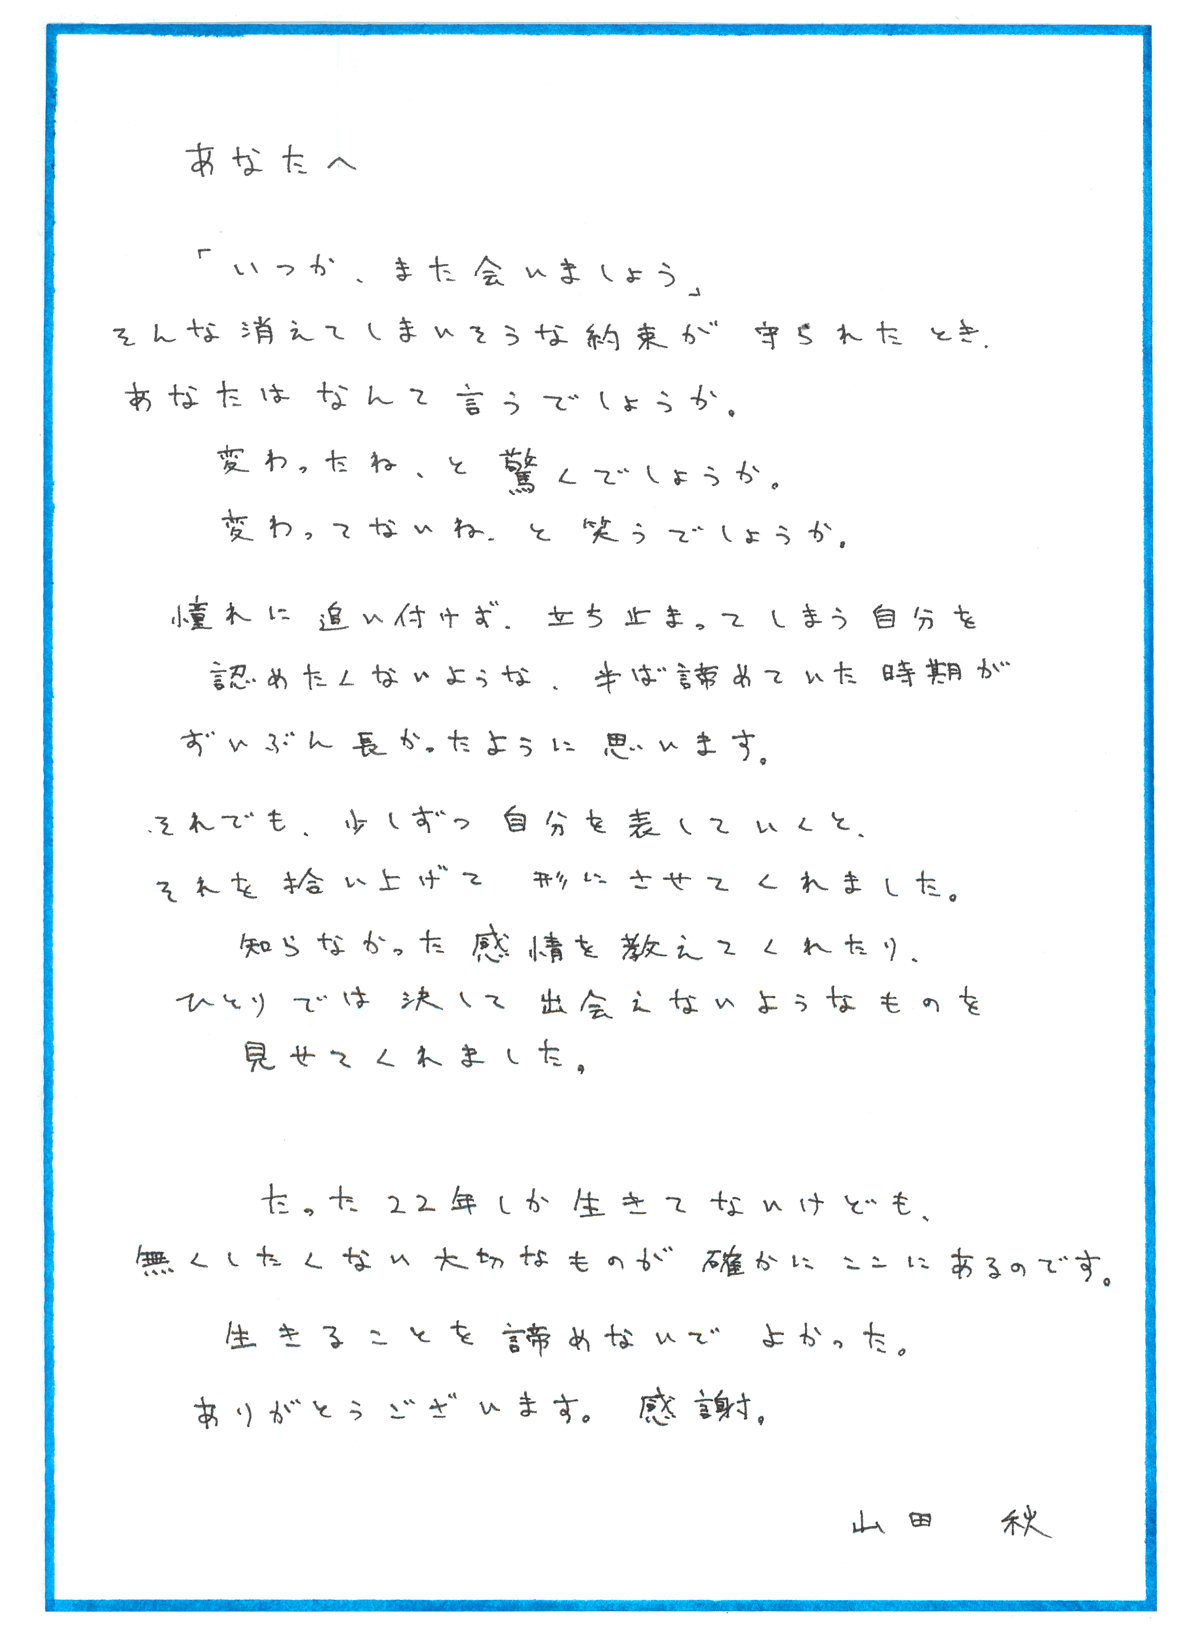 あなたへ
「いつか、また会いましょう」
そんな消えてしまいそうな約束が 守られたとき、
あなたは なんて 言うでしょうか。
変わったね、と 驚くでしょうか。
変わってないね、と 笑うでしょうか。
憧れに 追い付けず、立ち止まってしまう 自分を
認めたくないような、半ば諦めていた 時期が
ずいぶん 長かったように 思います。
それでも、少しずつ 自分を 表していくと、
それを 拾い上げて 形にさせてくれました。
知らなかった 感情を 教えてくれたり、
ひとりでは 決して 出会えないようなものを
見せてくれました。
たった 22年しか 生きてないけども、
無くしたくない 大切なものが 確かに ここに あるのです。
生きることを 諦めないで よかった。
ありがとうございます。 感謝。
山田 秋